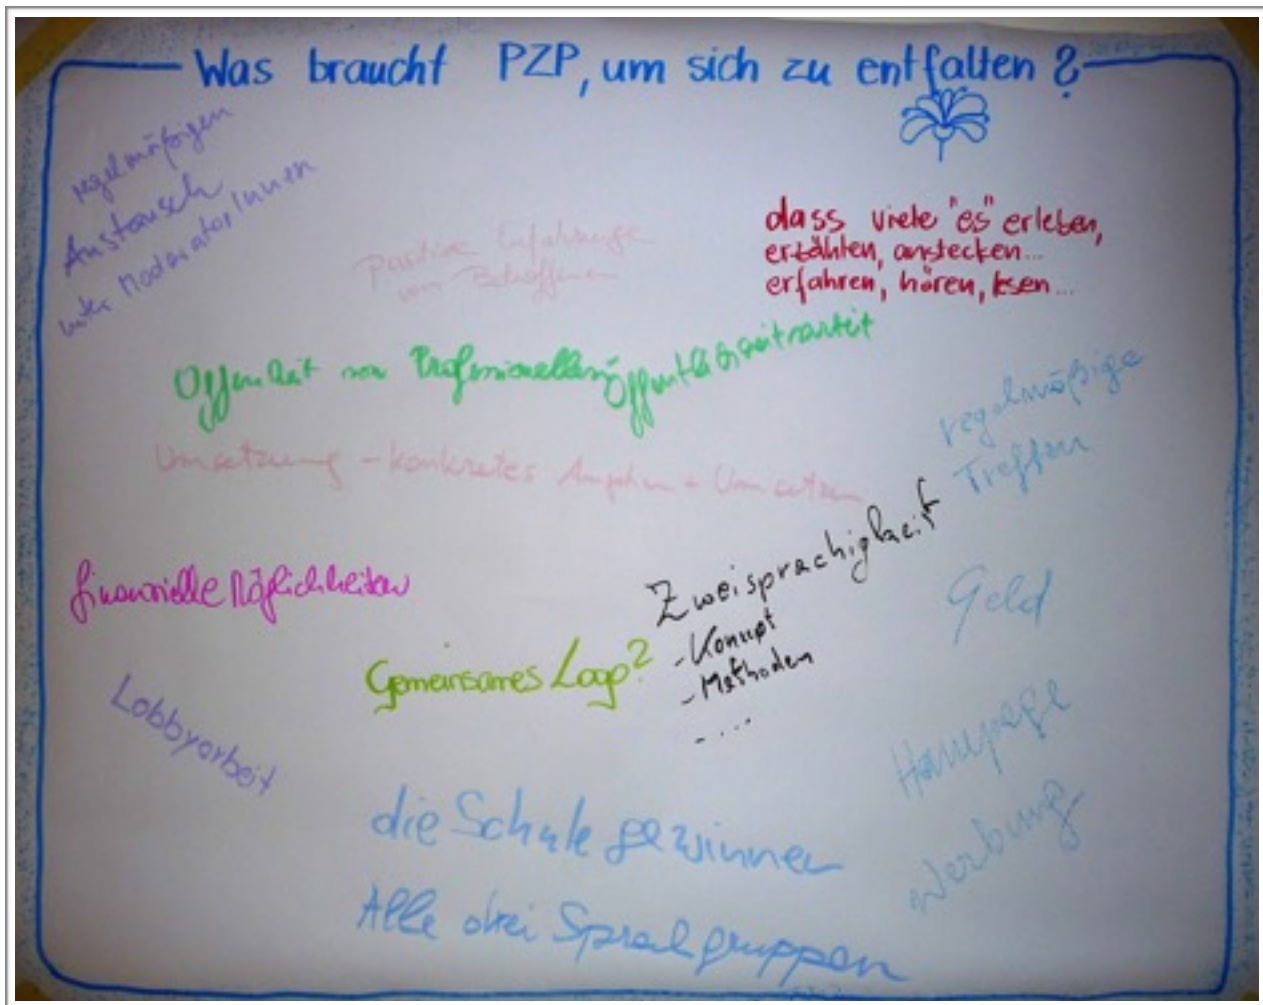 Was braucht PZP, um sich zu entfalten?
regelmäßigen
Austausch
unter ModeratorInnen
positive Erfahrunge
von Betroffenen
dass viele "es" erleben,
erzählen, anstecken...
erfahren, hören, lesen...
Offenheit von Professionellen
Öffentlichkeitsarbeit
Umsetzung - konkretes Angehen + Umsetzen
regelmäßige
Treffen
finanzielle Möglichkeiten
Zweisprachigkeit
- Konzept
- Methoden
- ....
Geld
Gemeinsames Logo?
Lobbyarbeit
Homepage
Werbung
die Schule gewinnen
Alle drei Sprachgruppen